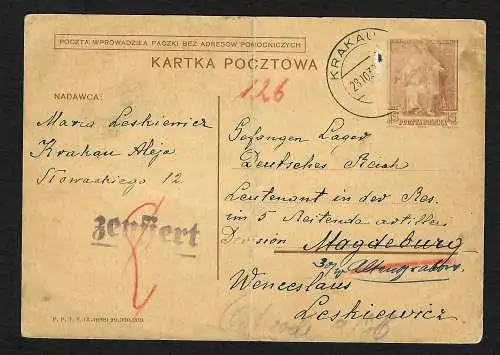 POCZTA WPROWADZIŁA PACZKI BEZ ADRESÓW POMOCNICZYCH
KARTKA POCZTOWA
KRAKAU
23.10.3
POCZTA POLSKA
126
NADAWCA:
Maria Leskiewicz
Krakau Aleja
Słowackiego 12
zensiert
Gefangen Lager
Deutsches Reich
Lieutenant in der Res.
im 5 Reitende artillei
Division Magdeburg
Altengrabow
Wenceslaus
Leskiewicz